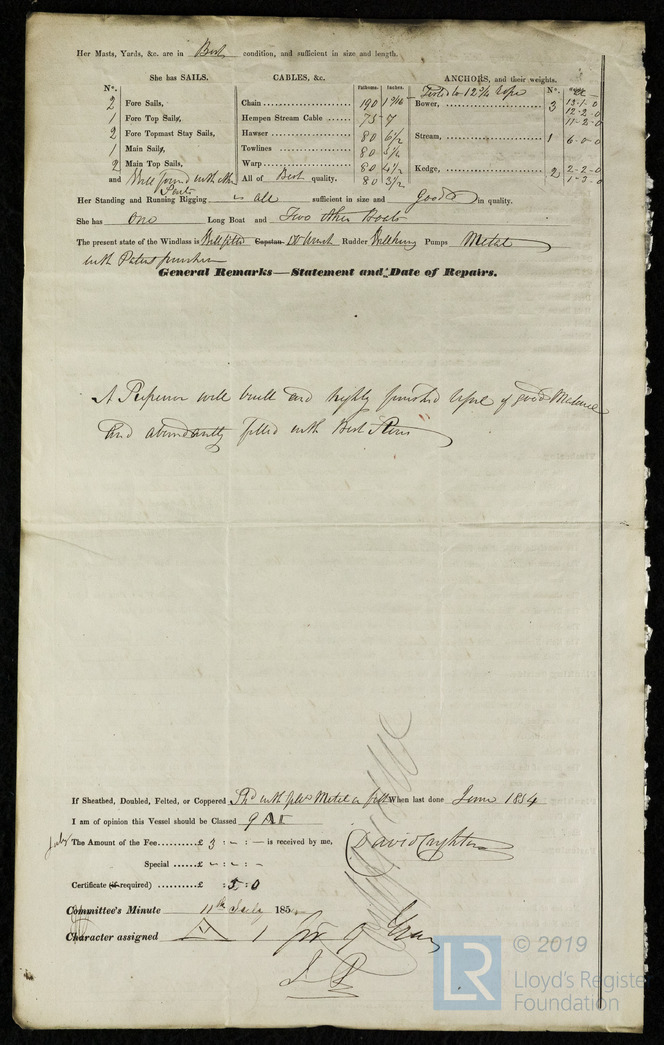 Her Masts, Yards, &c. are in Best condition, and sufficient in size and length.
She has SAILS.
Nº.
2 Fore Sails,
2 Fore Top Sails,
2 Fore Topmast Stay Sails,
1 Main Sails,
2 Main Top Sails,
and Well found with other
Sails
CABLES, &c. Fathoms. Inches.
Chain 190
Hempen Stream Cable 75 7
Hawser 80 6½
Towlines 80
Warp 80 4½
All of Best quality. 80 3½
ANCHORS, and their weights.
Nº.
Bower, 3 13-1-0
12-2-0
11-2-0
Stream, 1 6-0-0
Kedge, 2 2-2-0
1-3-0
Her Standing and Running Rigging is all sufficient in size and Good in quality.
She has One Long Boat and Two other Boats
The present state of the Windlass is Well fitted Capstan Do Winch Rudder Well hung Pumps Metal
with Patent purchase
General Remarks—Statement and Date of Repairs.
A Superior well built and highly finished Vessel of good Material
and abundantly filled with Best
If Sheathed, Doubled, Felted, or Coppered Shd with Metal on felt When last done June 1854
I am of opinion this Vessel should be Classed 9 A1
The Amount of the Fee......£ 3 : - : - is received by me,
David Crighton
Special ......£ - : - : -
Certificate (if required) ..........£ : 5 : 0
Committee's Minute 11th July 185
Character assigned A 1 for 9 Years
© 2019
LR
Lloyd's Register
Foundation